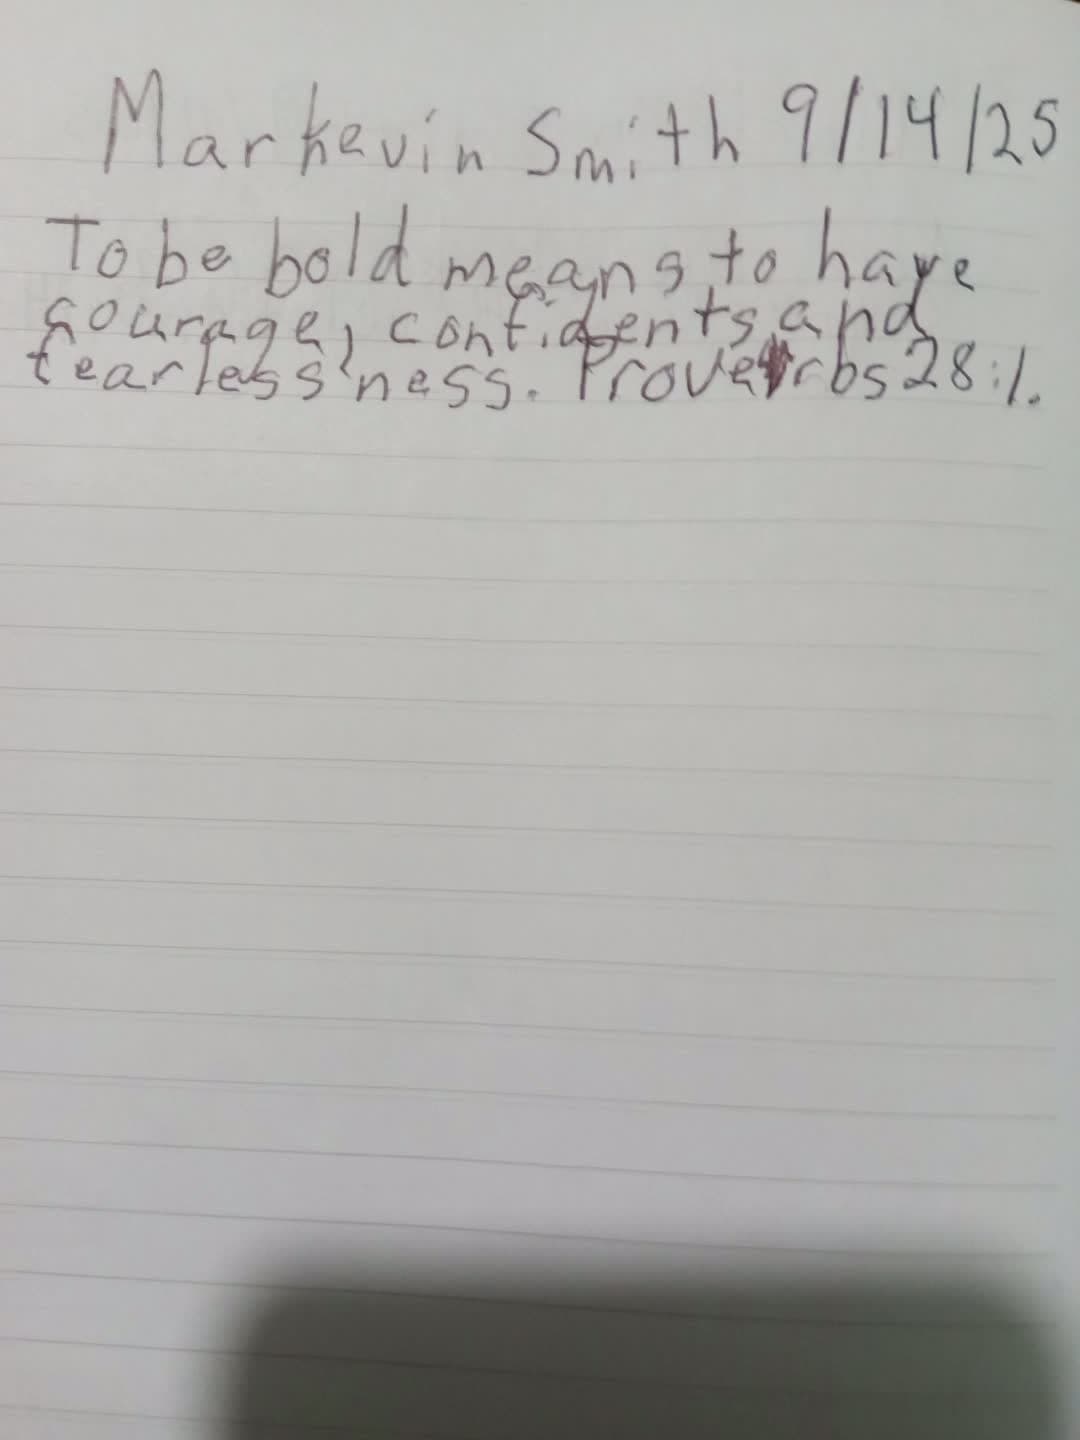 Markevin Smith 9/14/25
To be bold means to have
courage, confidents and
fearlessness. Proverbs 28:1.